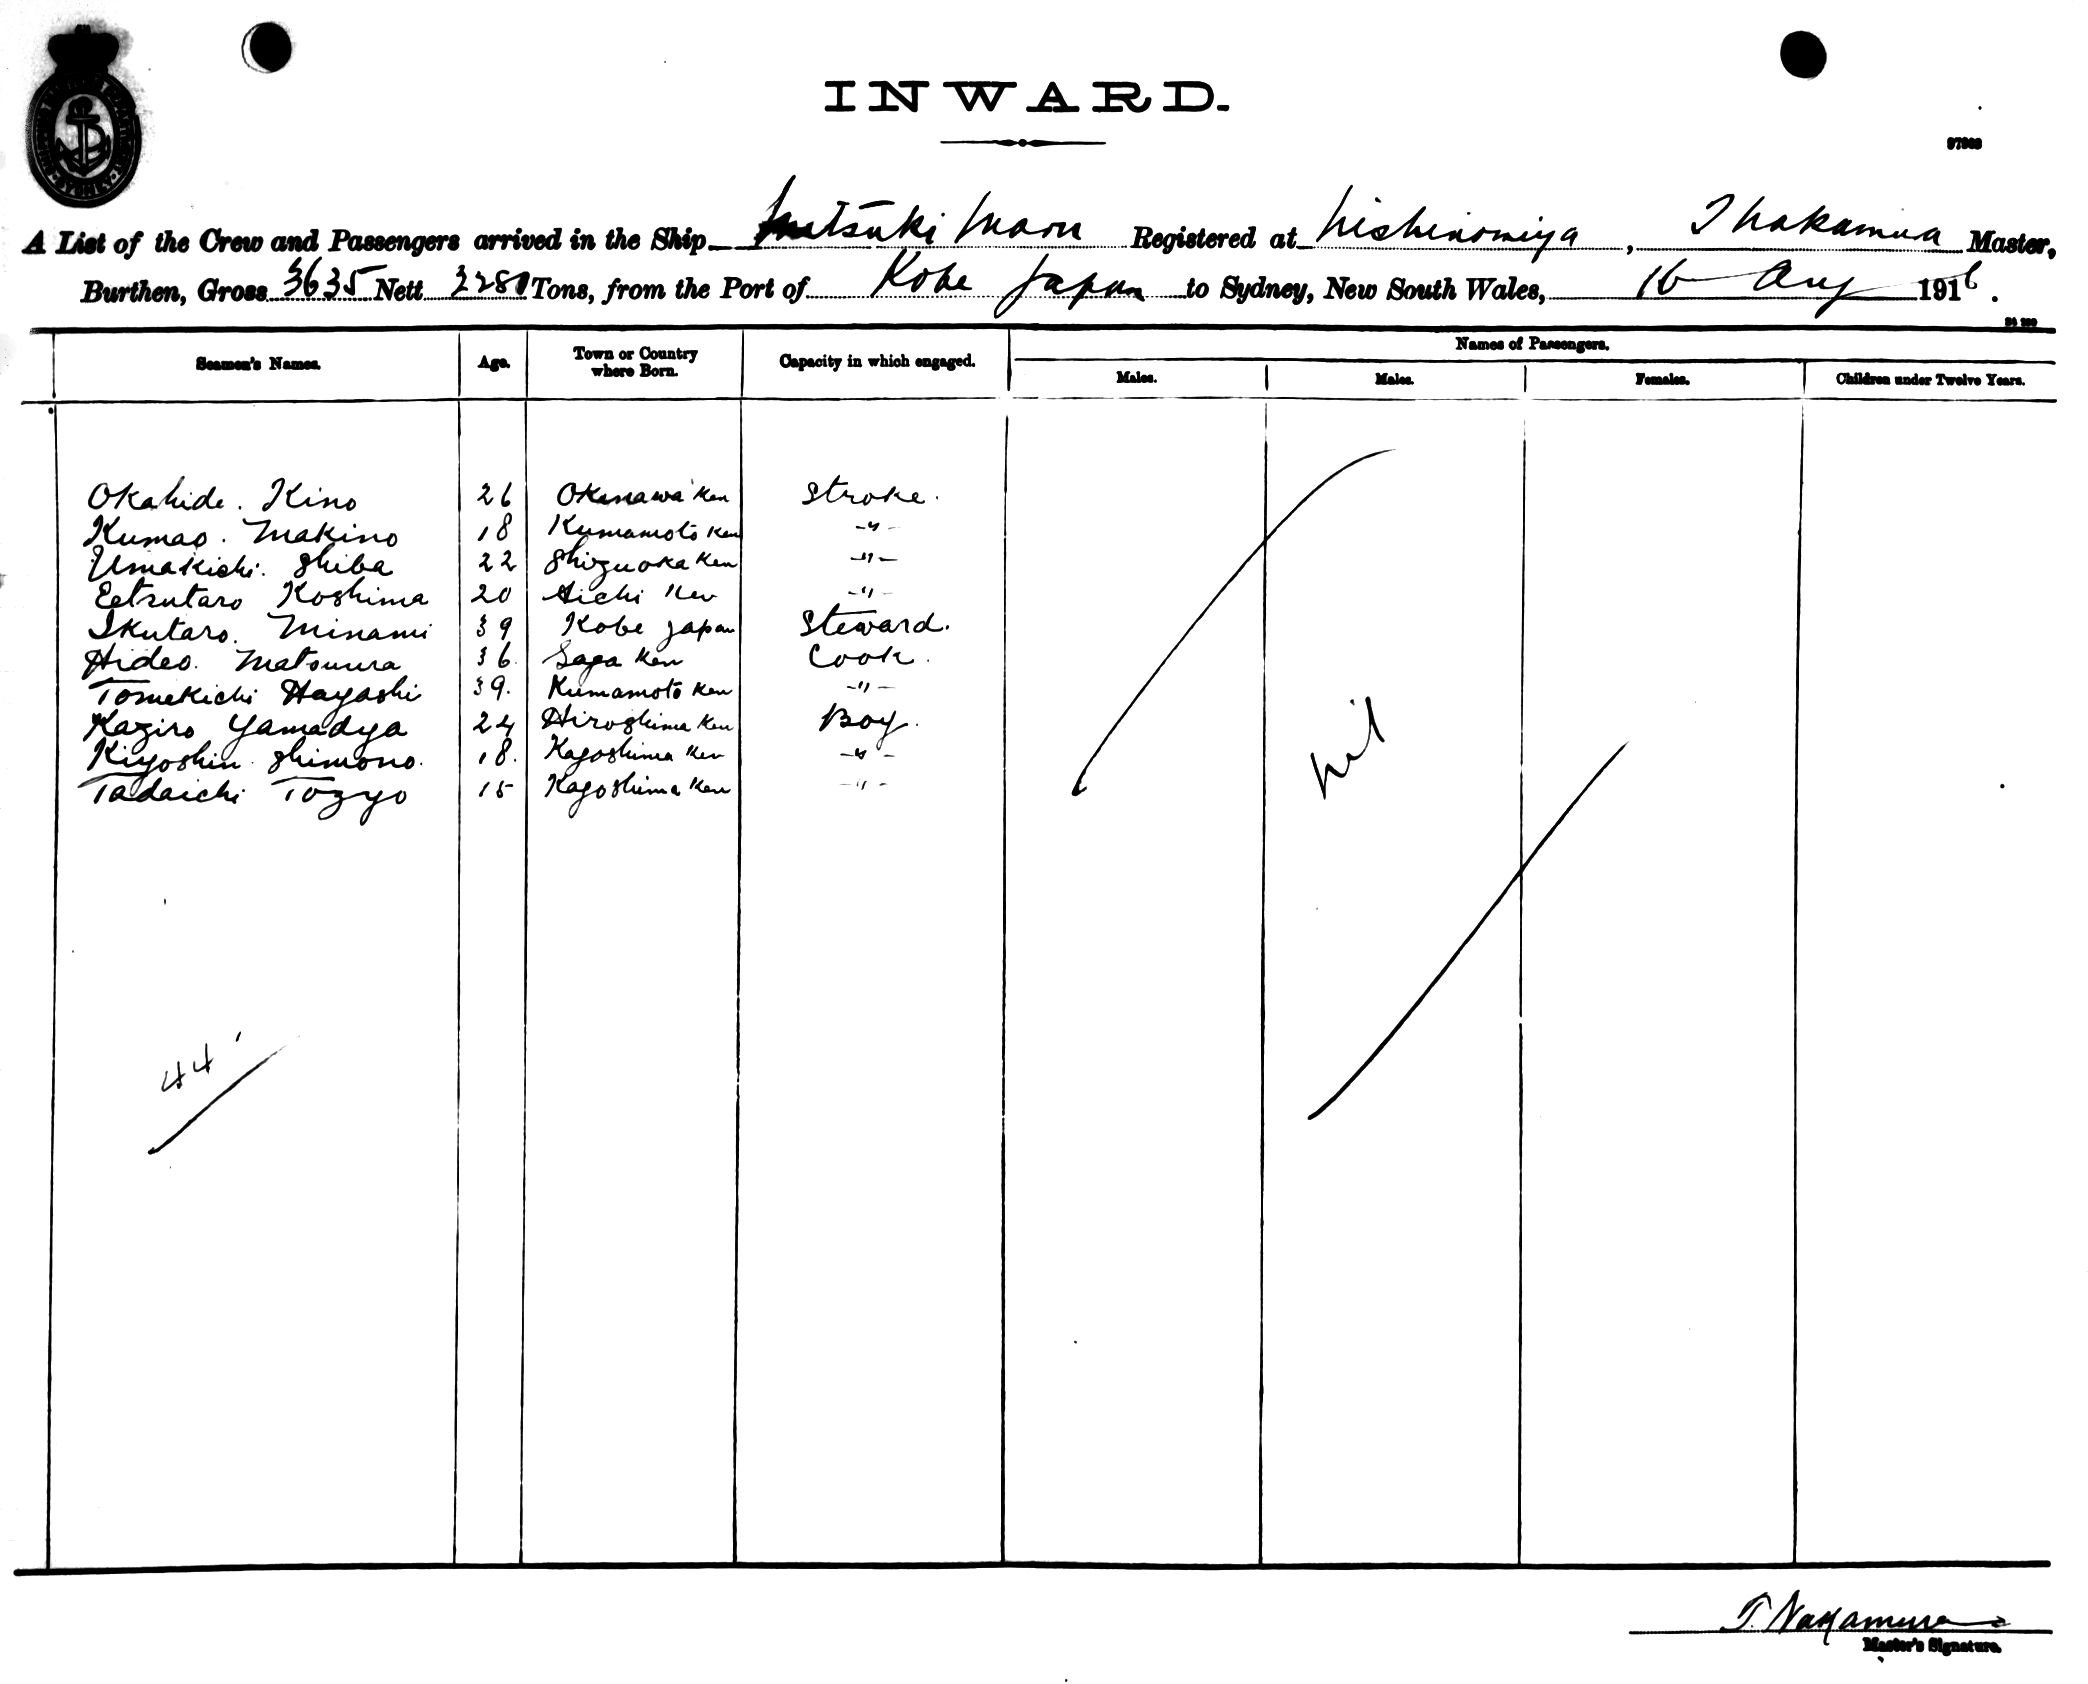 INWARD.
97909
A List of the Crew and Passengers arrived in the Ship Mutsuki Maru Registered at Nishinomiya, T Nakamura Master,
Burthen, Gross 3635 Nett 2280 Tons, from the Port of Kobe Japan to Sydney, New South Wales, 16 Aug 1916.
Seamen's Names. Age. Town or Country where Born. Capacity in which engaged. Names of Passengers.
Males. Males. Females. Children under Twelve Years.
Okahide. Kino 26 Okinawa Ken Stroke.
Kumao. Makino 18 Kumamoto Ken -"-
Umakichi. Shiba 22 Shizuoka Ken -"-
Eetsutaro Koshima 20 Aichi Ken -"-
Ikutaro. Minami 39 Kobe Japan Steward.
Hideo. Matsuura 36 Saga Ken Cook.
Tomekichi Hayashi 39. Kumamoto Ken -"-
Kaziro Yamadya 24 Hiroshima Ken Boy.
Kiyoshin Shimono. 18. Kagoshima Ken -"-
Tadaichi Tozyo 15 Kagoshima Ken -"-
nil
44
T. Nakamura
Master's Signature.